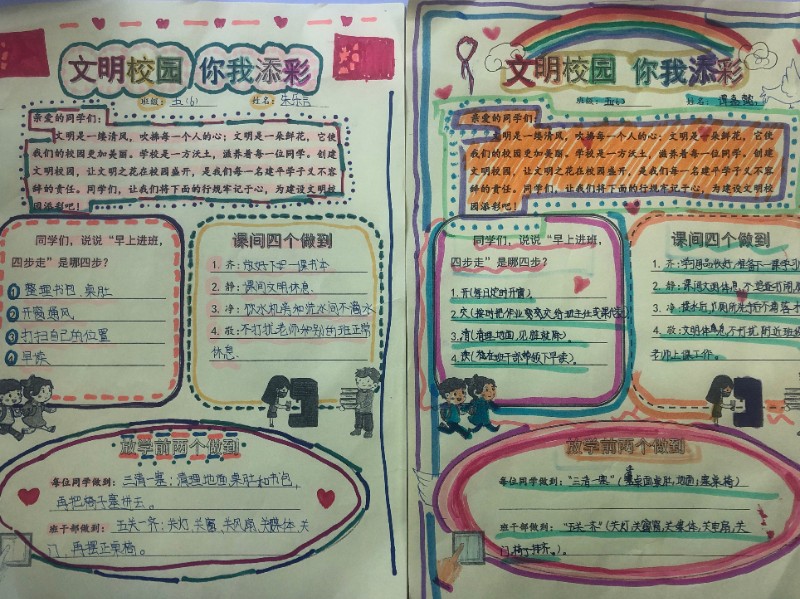 文明校园 你我添彩
班级：五(6) 姓名：朱乐言
亲爱的同学们：
文明是一缕清风，吹拂每一个人的心；文明是一朵鲜花，它使
我们的校园更加美丽。学校是一方沃土，滋养着每一位同学。创建
文明校园，让文明之花在校园盛开，是我们每一名建华学子义不容
辞的责任。同学们，让我们将下面的行规牢记于心，为建设文明校
园添彩吧！
同学们，说说“早上进班，
四步走”是哪四步？
1 整理书包、桌肚
2 开窗通风
3 打扫自己的位置
4 早读
课间四个做到
1. 齐：放好下早一课书本
2. 静：课间文明休息
3. 净：饮水机旁和洗水间不滴水
4. 敬：不打扰老师和别的班正常
休息.
放学前两个做到
每位同学做到：三清一塞：清理地面桌肚和书包，
再把椅子塞进去。
班干部做到：五关一齐：关灯、关窗、关风扇、关媒体、关
门，再摆正桌椅。
文明校园 你我添彩
班级：五( ) 姓名：
亲爱的同学们：
文明是一缕清风，吹拂每一个人的心；文明是一朵鲜花，它使
我们的校园更加美丽。学校是一方沃土，滋养着每一位同学。创建
文明校园，让文明之花在校园盛开，是我们每一名建华学子义不容
辞的责任。同学们，让我们将下面的行规牢记于心，为建设文明校
园添彩吧！
同学们，说说“早上进班，
四步走”是哪四步？
1.开(每日定时开窗).
2.交(按时把作业交给班主任或课代表)
3.清(清理地面,见脏就除).
4.读(在班干部带领下早读).
课间四个做到
1. 齐：学习用品放好,准备下一课学习
2. 静：课间文明休息,不追逐打闹
3. 净：接水后节厕所洗手后不
4. 敬：文明休息不打扰附近班级
老师上课工作。
放学前两个做到
每位同学做到：“三清一塞”(清桌面桌肚,地面;塞桌椅)
班干部做到：“五关一齐”(关灯,关窗,关媒体,关电扇,关
门,椅子排齐。).